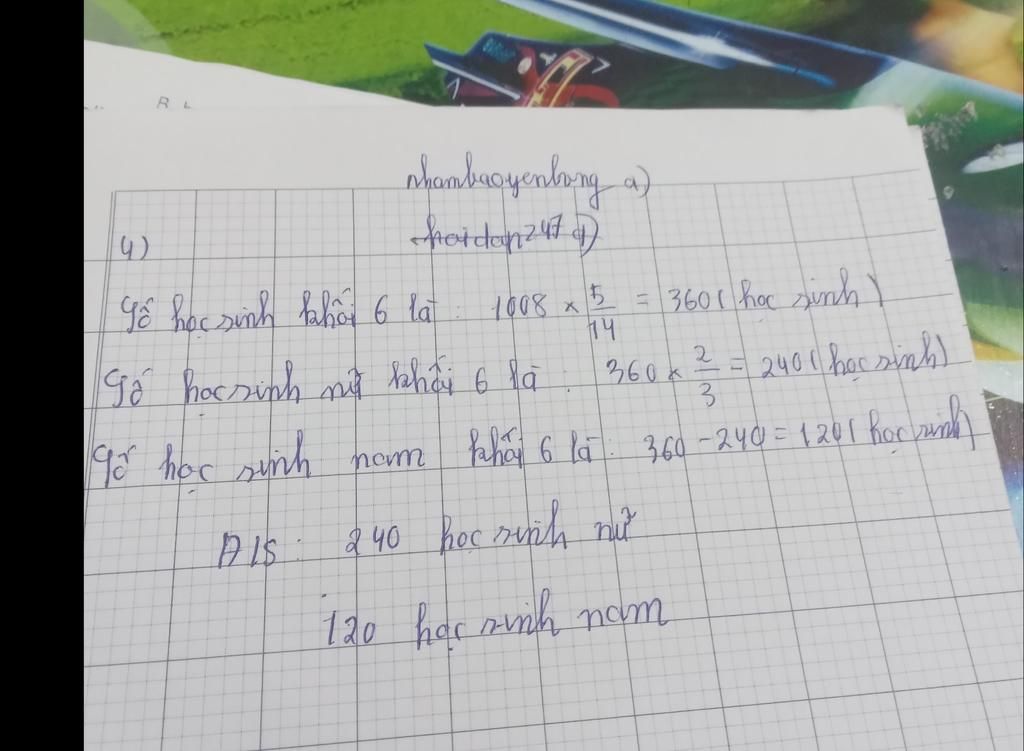 nhambaoyenhong a)
4)
hoidap247 d)
Số học sinh khối 6 là : 1008 × 5/14 = 360 ( học sinh )
Số học sinh nữ khối 6 là : 360 × 2/3 = 240 ( học sinh )
Số học sinh nam khối 6 là : 360 - 240 = 120 ( học sinh )
Đ/S : 240 học sinh nữ
120 học sinh nam